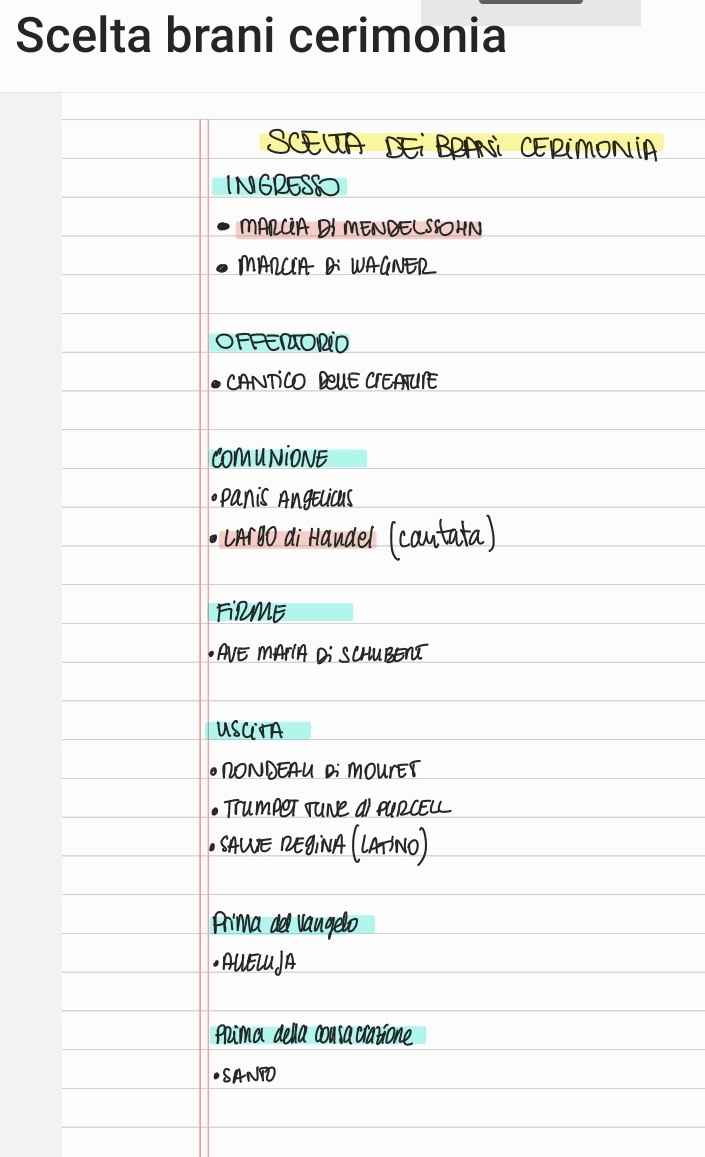 Scelta brani cerimonia
SCELTA DEi BRANi CERiMONiA
INGRESSO
• MARCiA Di MENDELSSOHN
• MARCiA Di WAGNER
OFFERTORiO
• CANTiCO DELLE CREATURE
COMUNiONE
• PANiS ANgELiCUS
• LARGO di Handel (cantata)
FiRME
• AVE MARiA Di SCHUBERT
USCiTA
• RONDEAU Di MOURET
• TRUMPET TUNE di PURCELL
• SALVE REGiNA (LATiNO)
Prima del Vangelo
• ALLELUJA
PRima della consacrazione
• SANTO